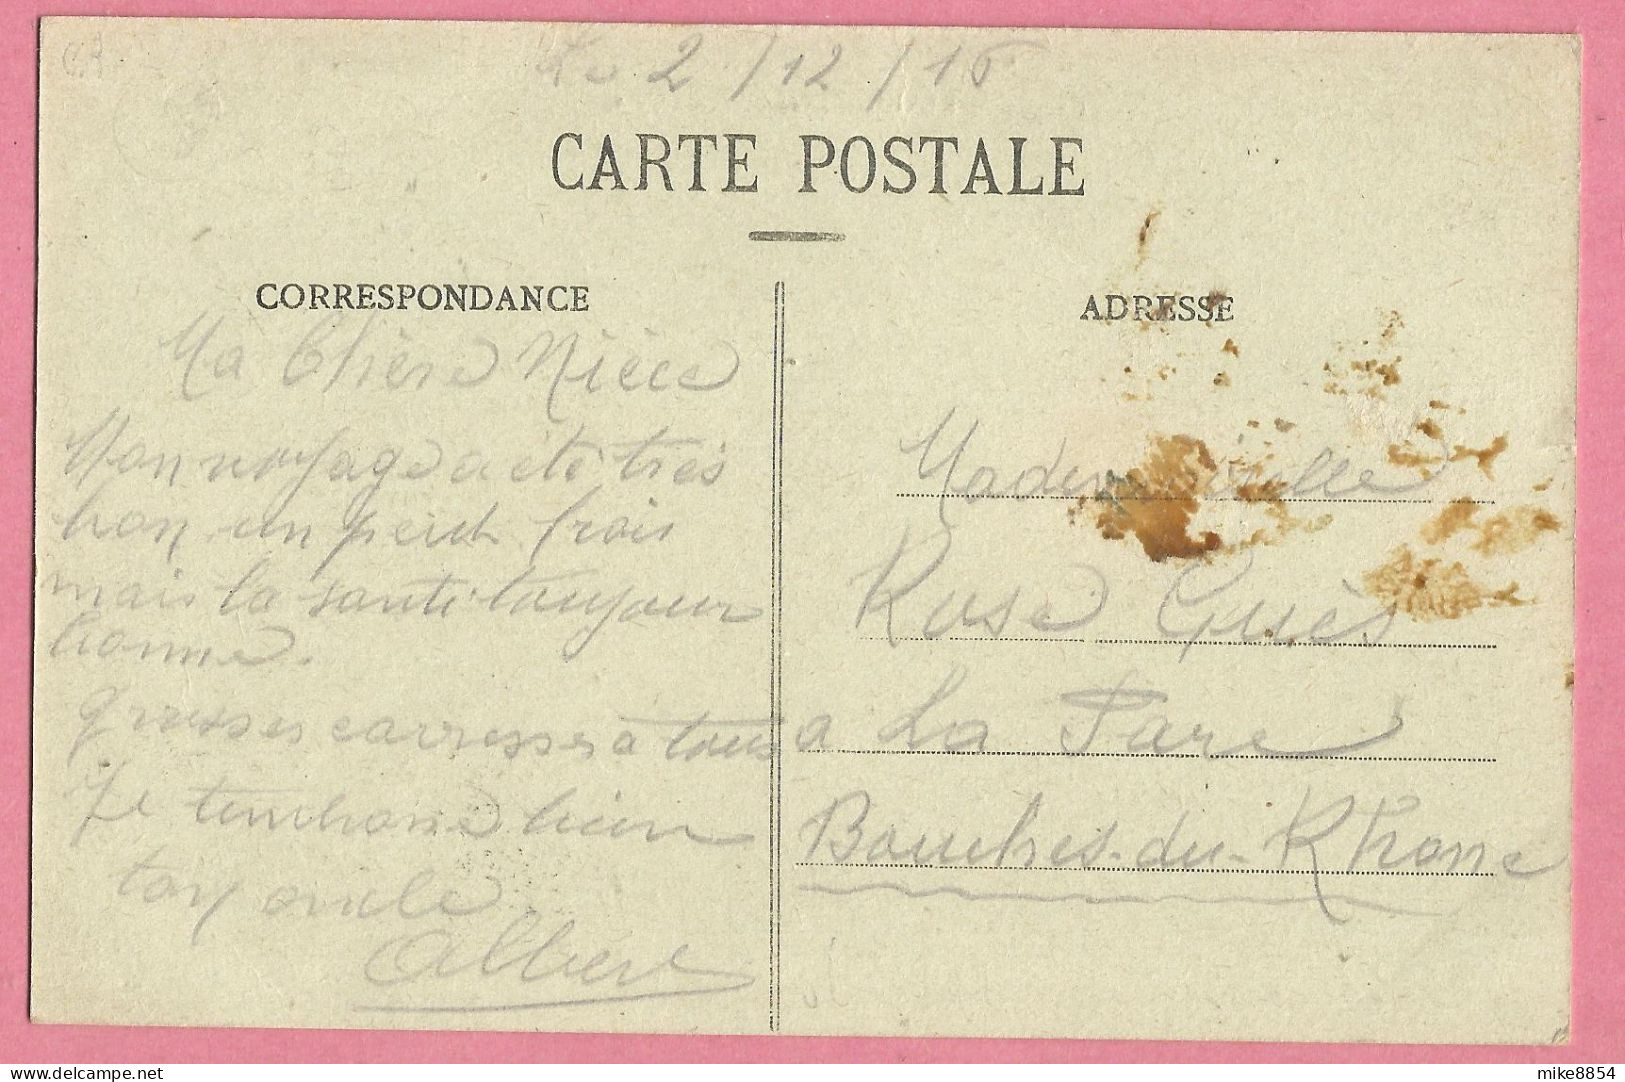 Le 2/12/16
CARTE POSTALE
CORRESPONDANCE
Ma Chère Nièce
Mon voyage a été très
bon un peu frois
mais la santé toujour
bonne.
grosses carresses a tous
Je bien
ton oncle
Albert
ADRESSE
Mademoiselle
Rose Guès
a La Fare
Bouches-du-Rhone
delcampe.net
mike8854